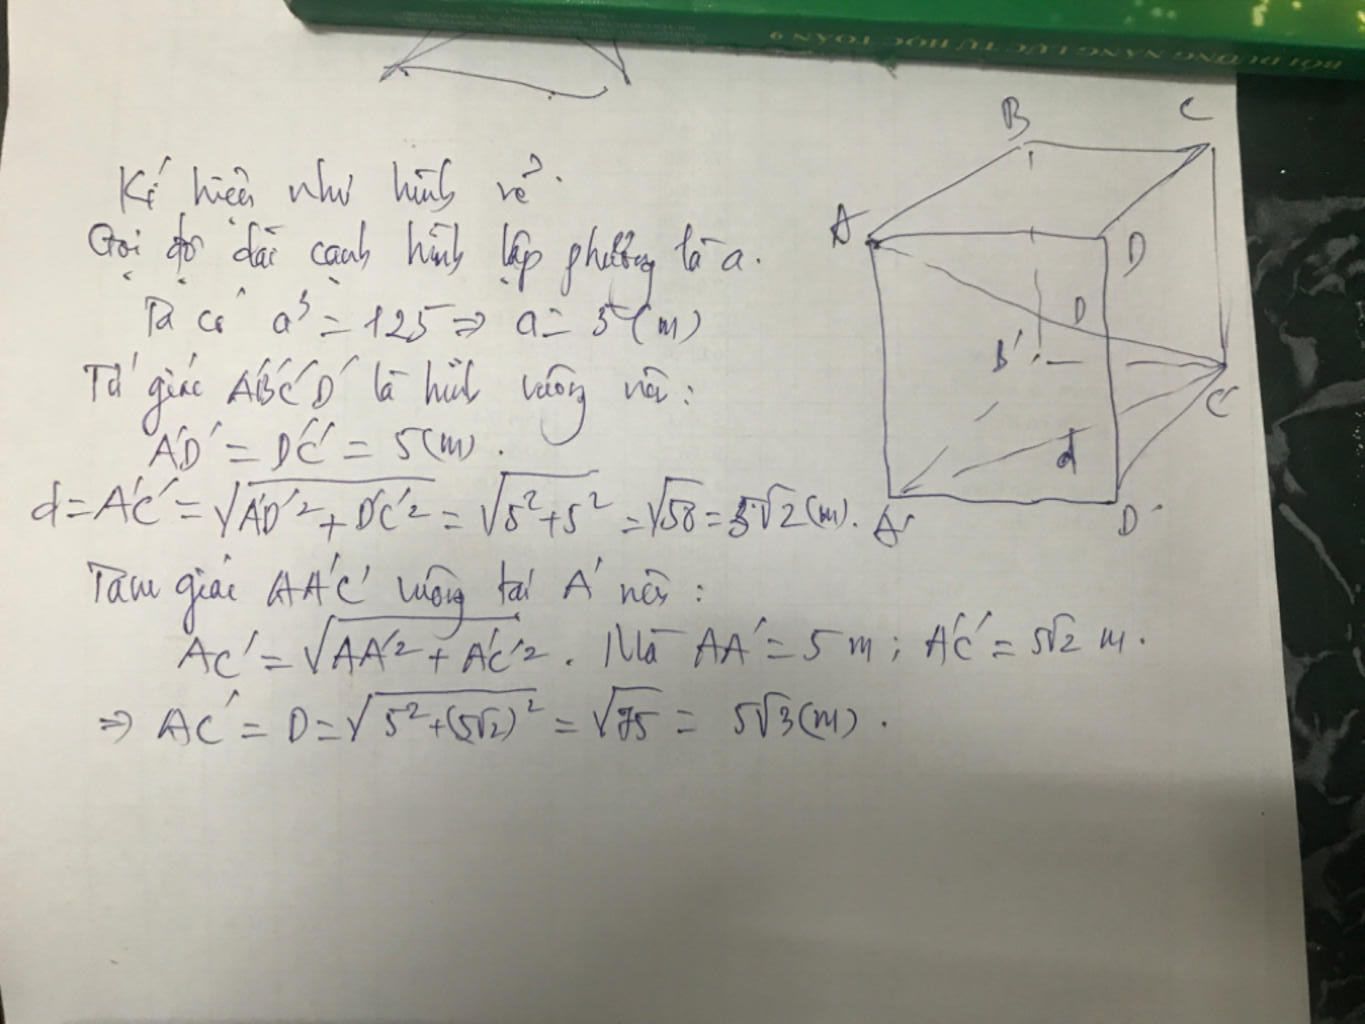 BỒI DƯỠNG NĂNG LỰC TỰ HỌC TOÁN 9
Kí hiệu như hình vẽ.
Gọi độ dài cạnh hình lập phương là a.
Ta có a³ = 125 ⇒ a = 5 (m)
Tứ giác A'B'C'D' là hình vuông nên:
A'D' = D'C' = 5 (m).
d = A'C' = √(A'D'² + D'C'²) = √(5² + 5²) = √50 = 5√2 (m).
Tam giác AA'C' vuông tại A' nên:
AC' = √(AA'² + A'C'²). Mà AA' = 5 m; A'C' = 5√2 m.
⇒ AC' = D = √(5² + (5√2)²) = √75 = 5√3 (m).
B C
A D
D
B'
C'
d
A' D'